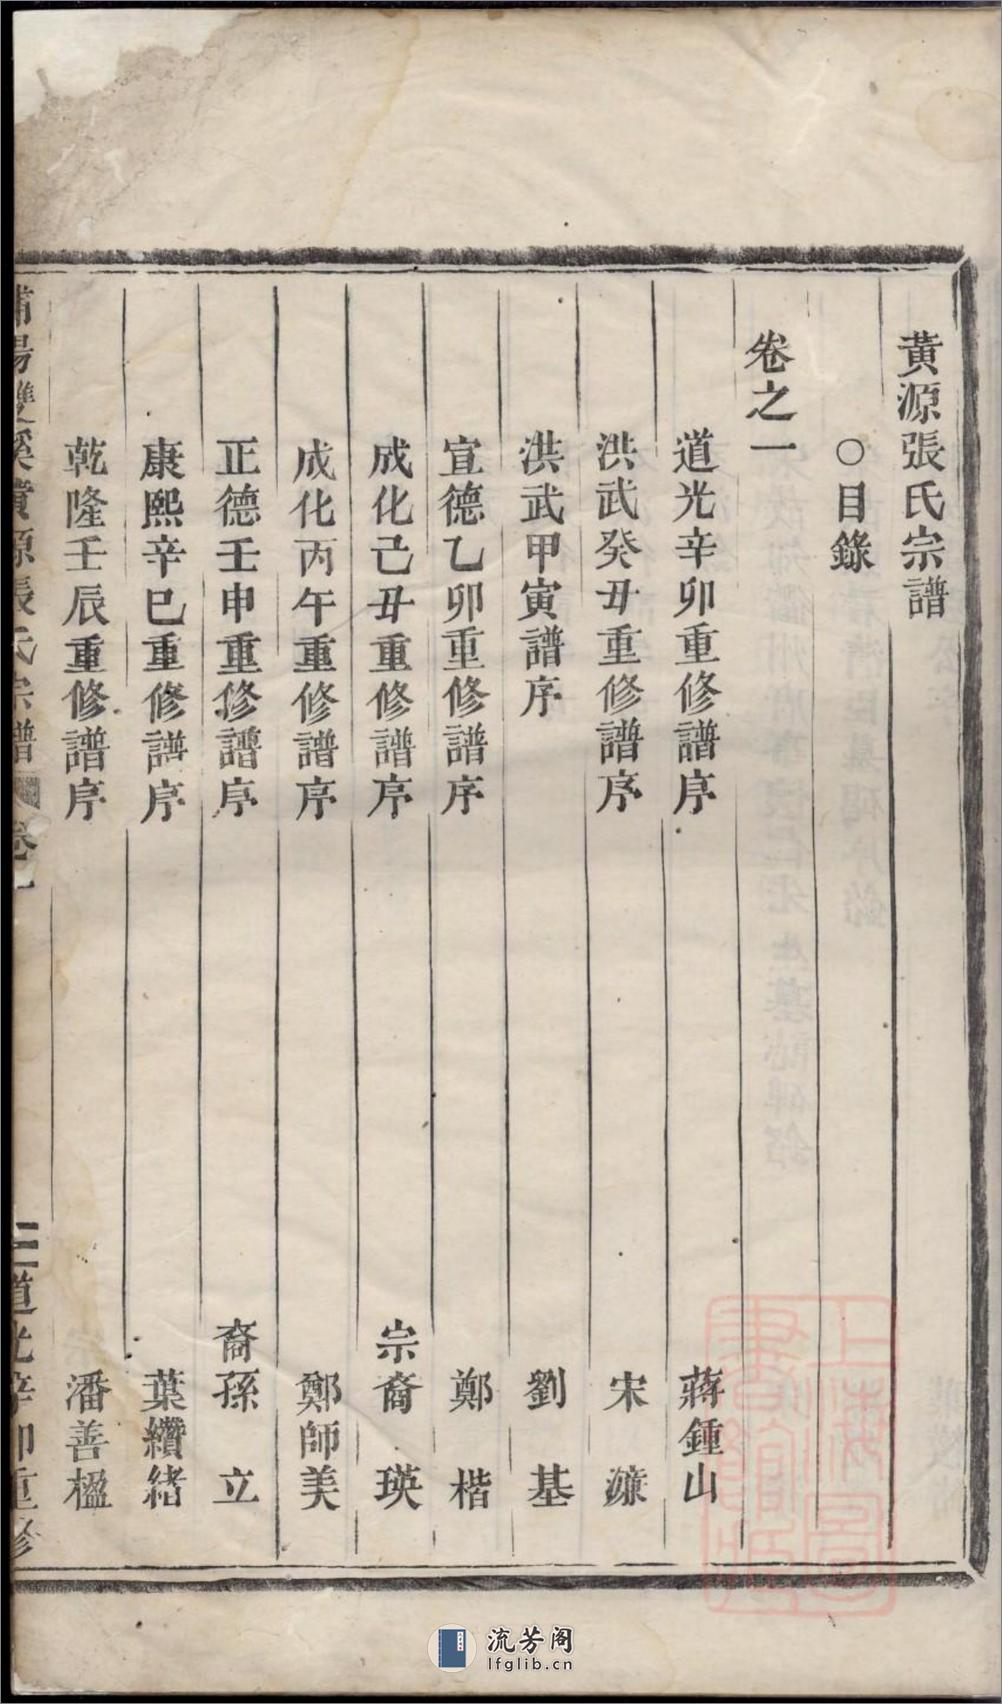 黃源張氏宗譜
○目錄
卷之一
道光辛卯重修譜序 蔣鍾山
洪武癸丑重修譜序 宋濂
洪武甲寅譜序 劉基
宣德乙卯重修譜序 鄭楷
成化己丑重修譜序 宗裔瑛
成化丙午重修譜序 鄭師美
正德壬申重修譜序 裔孫立
康熙辛巳重修譜序 葉纘緒
乾隆壬辰重修譜序 潘善楹
浦陽雙溪黃源張氏宗譜 卷一 二 道光辛卯重修
上海圖書館藏
流芳阁
lfglib.cn